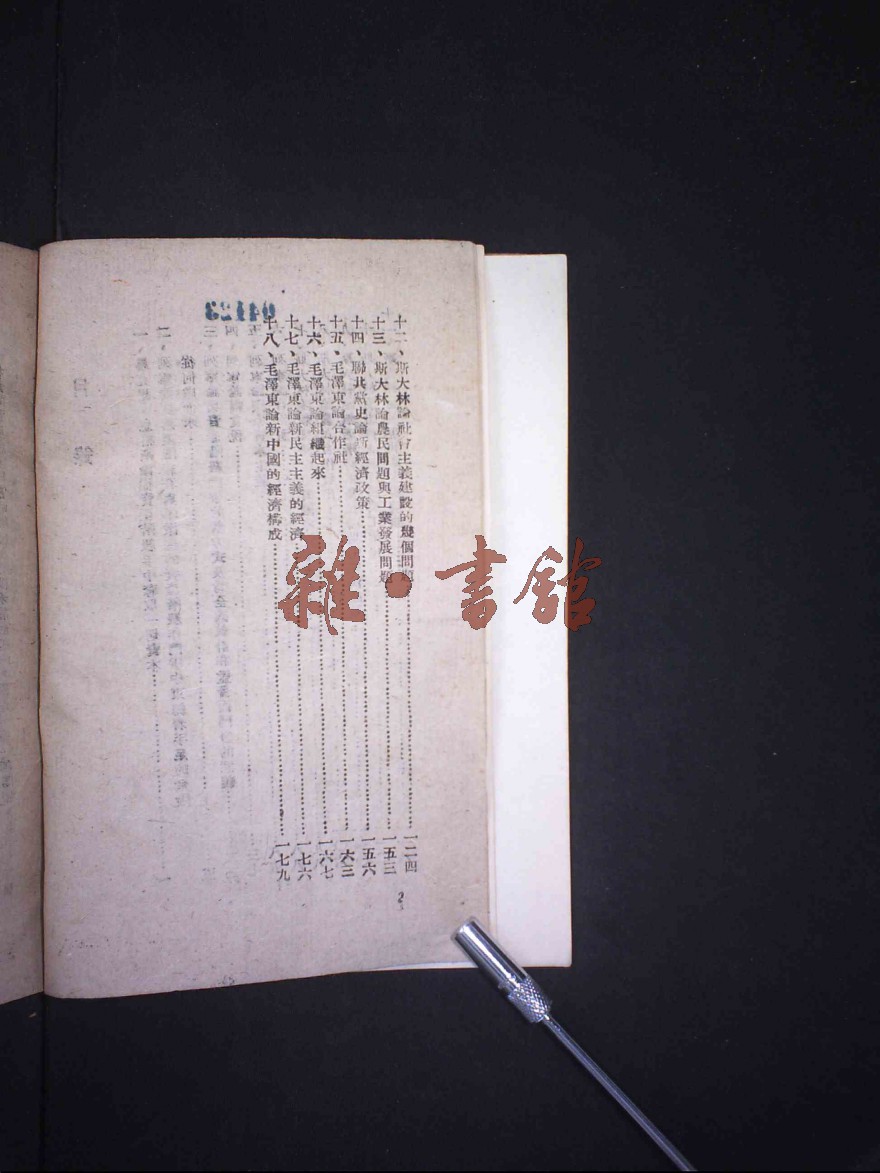 十二、斯大林論社會主義建設的幾個問題……一二四
十三、斯大林論農民問題與工業發展問題……一五三
十四、聯共黨史論新經濟政策……一五六
十五、毛澤東論合作社……一六三
十六、毛澤東論組織起來……一六七
十七、毛澤東論新民主主義的經濟……一七六
十八、毛澤東論新中國的經濟構成……一七九
2
雜·書館